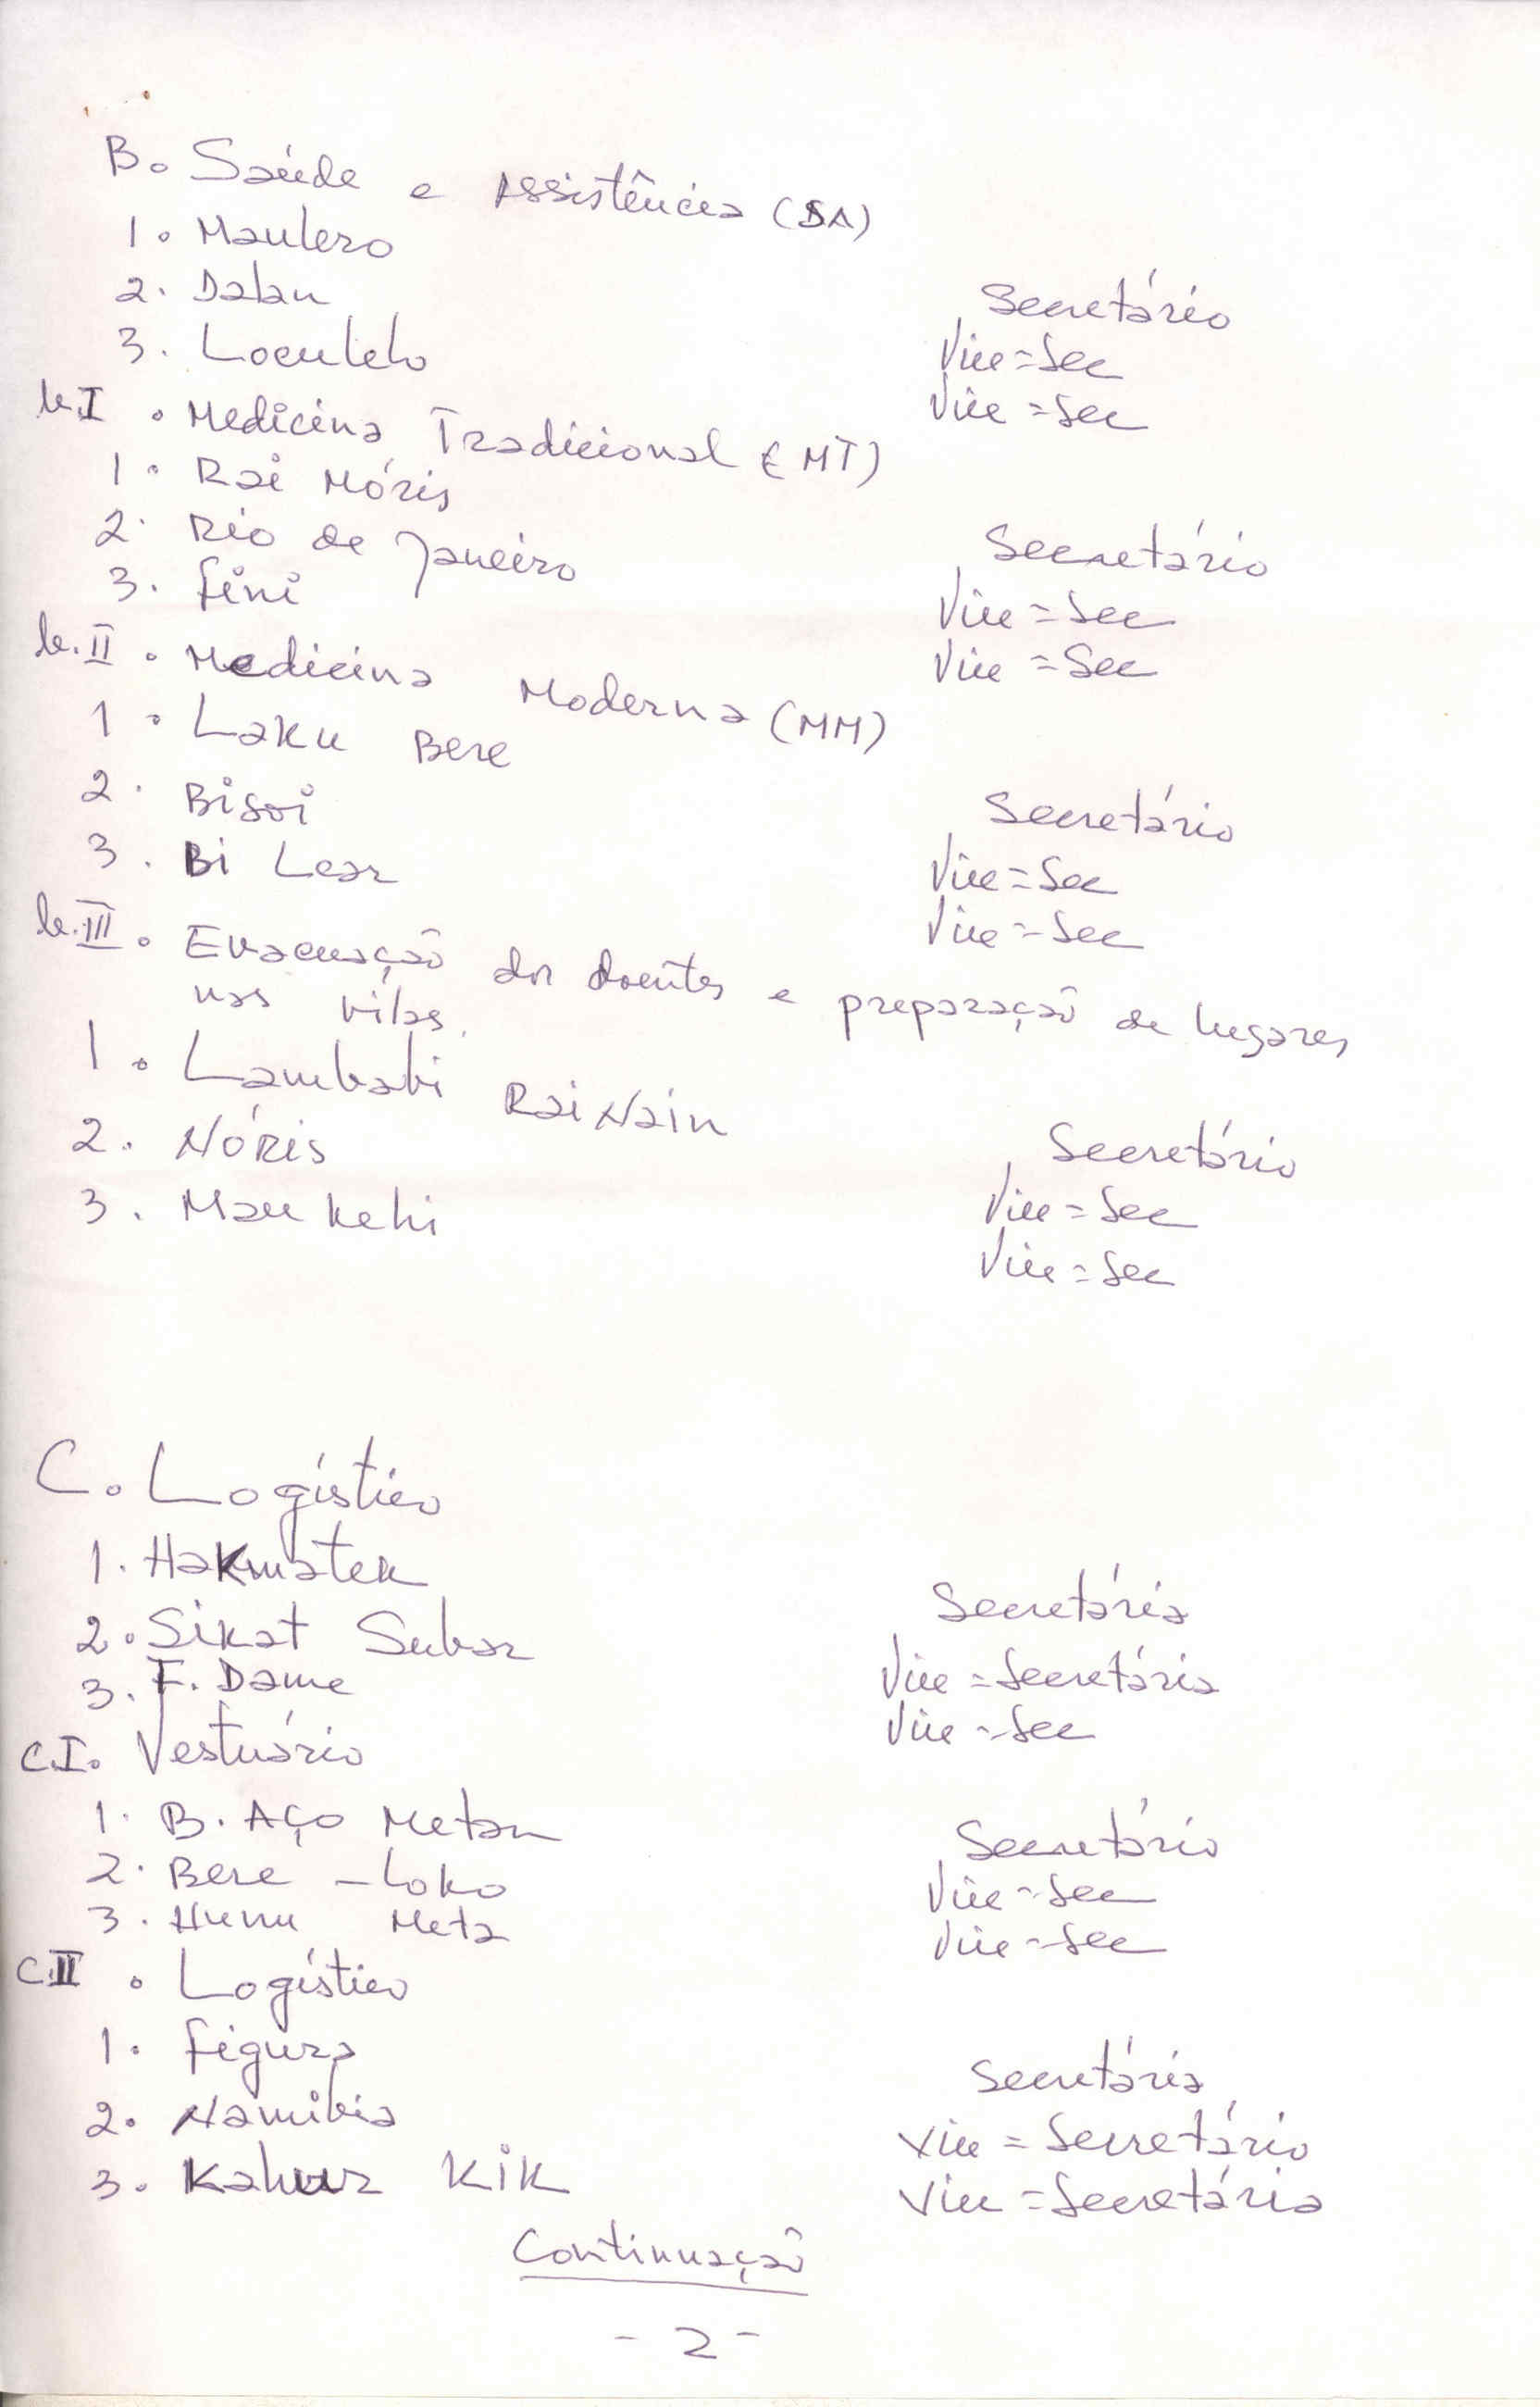 B. Saúde e Assistência (SA)
1. Maulero
2. Dalan Secretário
3. Loculelo Vice=Sec
Vice=Sec
b.I. Medicina Tradicional (MT)
1. Rai Móris
2. Rio de Janeiro Secretário
3. Fini Vice=Sec
Vice=Sec
b.II. Medicina Moderna (MM)
1. Laku Bere
2. Bisoi Secretário
3. Bi Lear Vice=Sec
Vice=Sec
b.III. Evacuação dos doentes e preparação de lugares
nas vilas.
1. Lambabi Rai Nain
2. Nóris Secretário
3. Mau Kehi Vice=Sec
Vice=Sec
C. Logístico
1. Hakmatek Secretária
2. Sikat Subar Vice=Secretária
3. F. Dame Vice=Sec
C.I. Vestuário
1. B. Aço Metan Secretário
2. Bere-Loko Vice=Sec
3. Hunu Meta Vice=Sec
C.II. Logístico
1. Figura Secretária
2. Namibia Vice=Secretário
3. Kik Vice=Secretária
Continuação
-2-